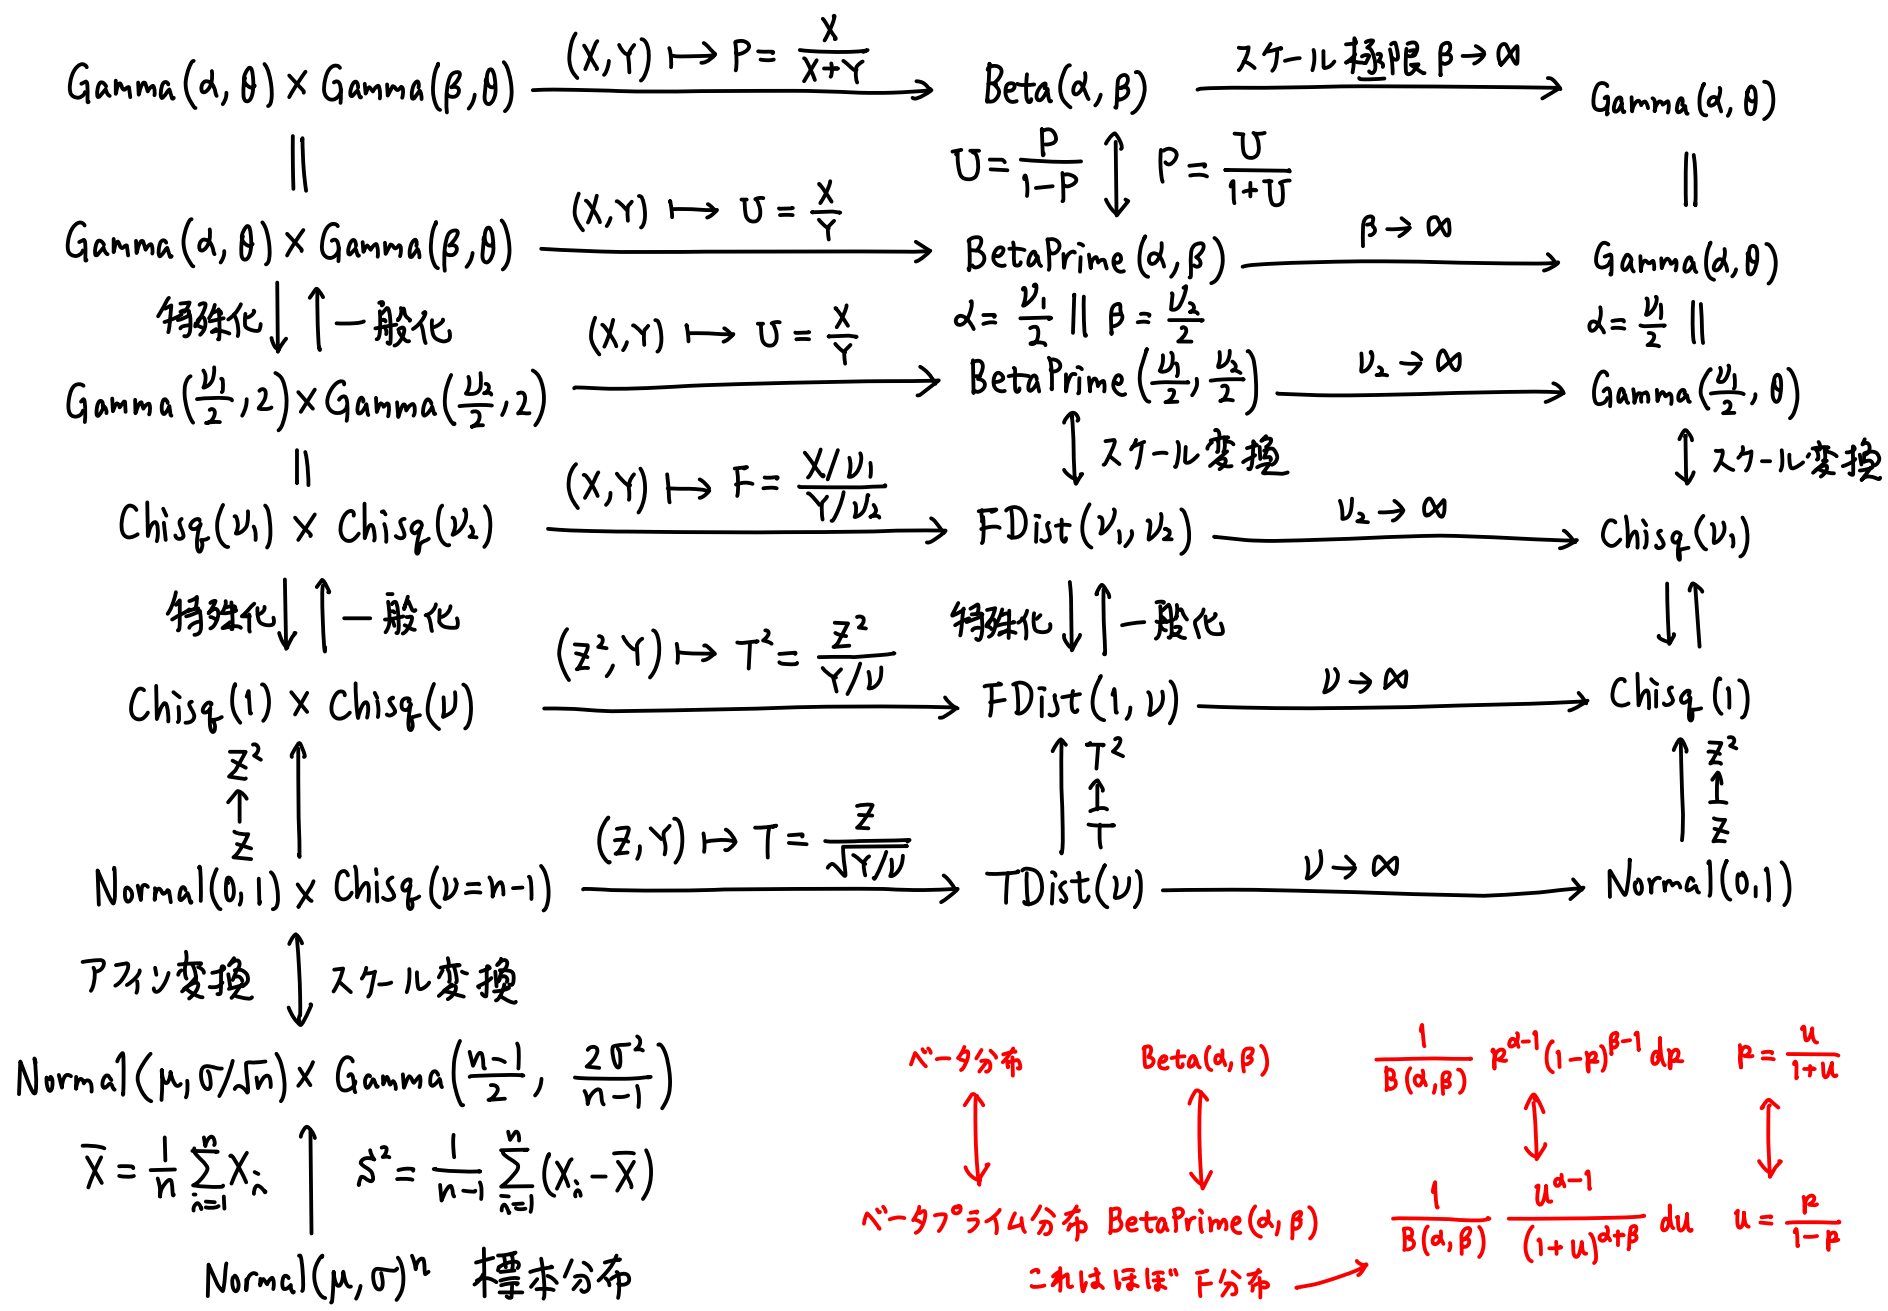 Gamma(α, θ) × Gamma(β, θ) (X, Y) ↦ P = X/(X+Y) Beta(α, β) スケール極限 β→∞ Gamma(α, θ)
|| U = P/(1-P) ↕ P = U/(1+U) ||
Gamma(α, θ) × Gamma(β, θ) (X, Y) ↦ U = X/Y BetaPrime(α, β) β→∞ Gamma(α, θ)
特殊化 ↓ ↑ 一般化 α = ν₁/2 || β = ν₂/2 α = ν₁/2 ||
Gamma(ν₁/2, 2) × Gamma(ν₂/2, 2) (X, Y) ↦ U = X/Y BetaPrime(ν₁/2, ν₂/2) ν₂→∞ Gamma(ν₁/2, θ)
|| ↕ スケール変換 ↕ スケール変換
Chisq(ν₁) × Chisq(ν₂) (X, Y) ↦ F = (X/ν₁)/(Y/ν₂) FDist(ν₁, ν₂) ν₂→∞ Chisq(ν₁)
特殊化 ↓ ↑ 一般化 特殊化 ↓ ↑ 一般化 ↓ ↑
Chisq(1) × Chisq(ν) (Z², Y) ↦ T² = Z²/(Y/ν) FDist(1, ν) ν→∞ Chisq(1)
Z² ↑ T² ↑ Z²
↑ ↑ ↑
Z T Z
Normal(0, 1) × Chisq(ν=n-1) (Z, Y) ↦ T = Z/√(Y/ν) TDist(ν) ν→∞ Normal(0, 1)
アフィン変換 ↕ スケール変換
Normal(μ, σ/√n) × Gamma((n-1)/2, 2σ²/(n-1))
X̄ = 1/n Σ_{i=1}^{n} X_i ↑ S² = 1/(n-1) Σ_{i=1}^{n} (X_i - X̄)
Normal(μ, σ)ⁿ 標本分布
ベータ分布 Beta(α, β) 1/B(α, β) p^{α-1}(1-p)^{β-1} dp p = u/(1+u)
↕ ↕ ↕ ↕
ベータプライム分布 BetaPrime(α, β) 1/B(α, β) u^{α-1}/(1+u)^{α+β} du u = p/(1-p)
これはほぼF分布 →